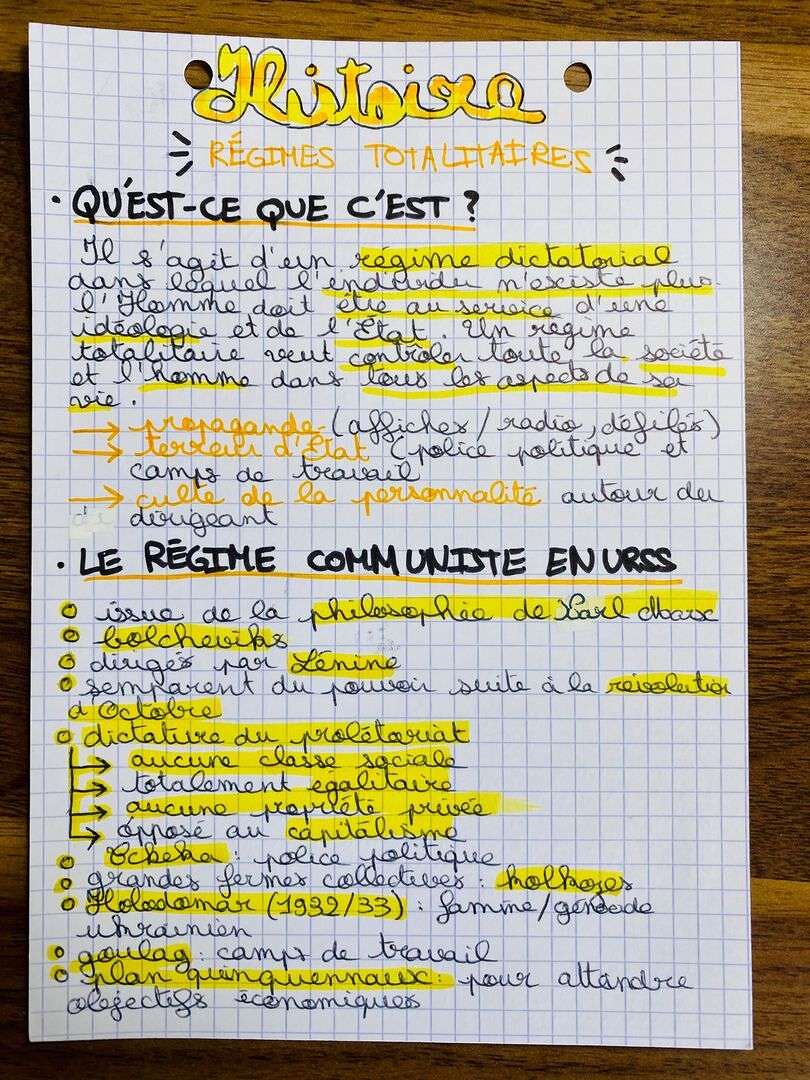 Histoire
RÉGIMES TOTALITAIRES
• QU'EST-CE QUE C'EST ?
Il s'agit d'un régime dictatorial
dans lequel l'individu n'existe plus.
l'Homme doit être au service d'une
idéologie et de l'État. Un régime
totalitaire veut contrôler toute la société
et l'homme dans tous les aspects de sa
vie.
→ propagande (affiches / radio, défilés)
→ terreur d'État (police politique et
camps de travail
→ culte de la personnalité autour du
dirigeant
• LE RÉGIME COMMUNISTE EN URSS
o issue de la philosophie de Karl Marx
o bolcheviks
o dirigés par Lénine
o semparent du pouvoir suite à la révolution
d'Octobre
o dictature du prolétariat
→ aucune classe sociale
→ totalement égalitaire
→ aucune propriété privée
→ opposé au capitalisme
o Tcheka : police politique
o grandes fermes collectives : kolkozes
o Holodomar (1932/33) : famine/génocide
ukrainien
o goulag : camps de travail
o plan quinquennaux : pour attandre
objectifs économiques